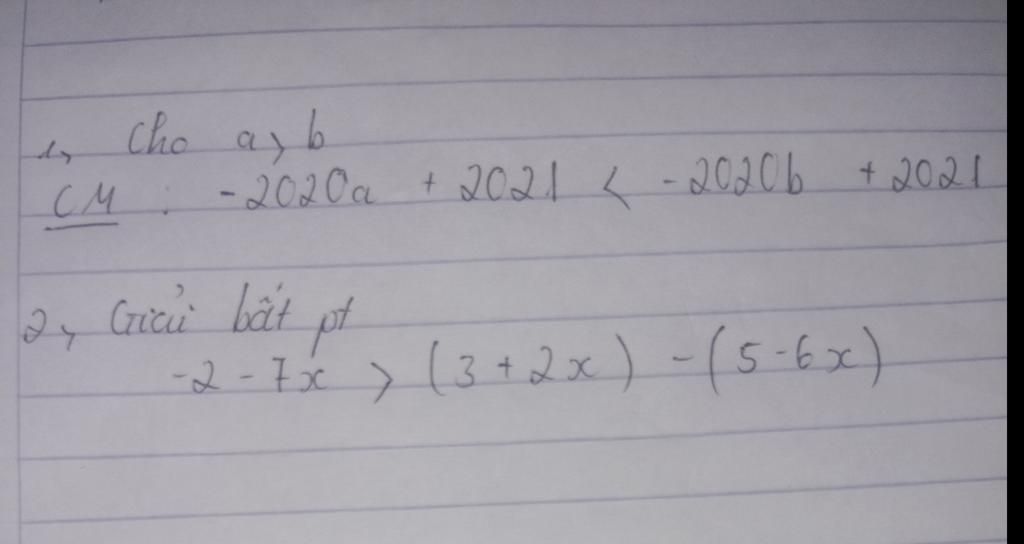 1, Cho a > b
CM : -2020a + 2021 < -2020b + 2021
2, Giải bất pt
-2 - 7x > (3 + 2x) - (5 - 6x)